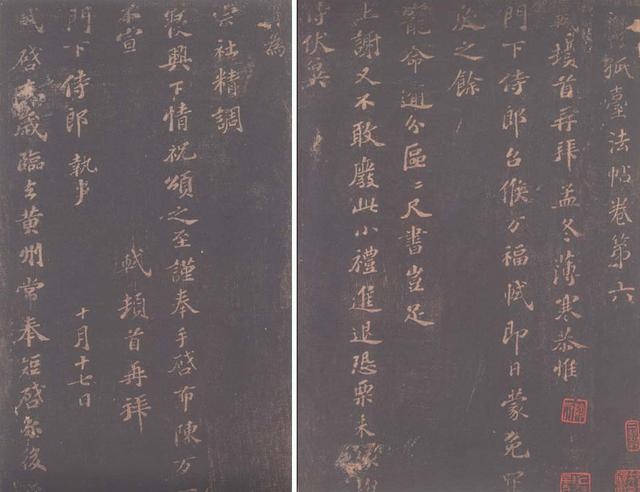 孤臺法帖卷第六
軾頓首再拜孟冬薄寒恭惟
門下侍郎台候万福軾即日蒙免罪
戾之餘
寵命逾分區二尺書豈足
上謝又不敢廢此小禮進退恐栗未
侍伏冀
為
宗社精調
寢興下情祝頌之至謹奉手啓布陳万一
不宣
軾頓首再拜
門下侍郎 執事
十月十七日
軾啓去歲臨去黃州常奉短啓尔後